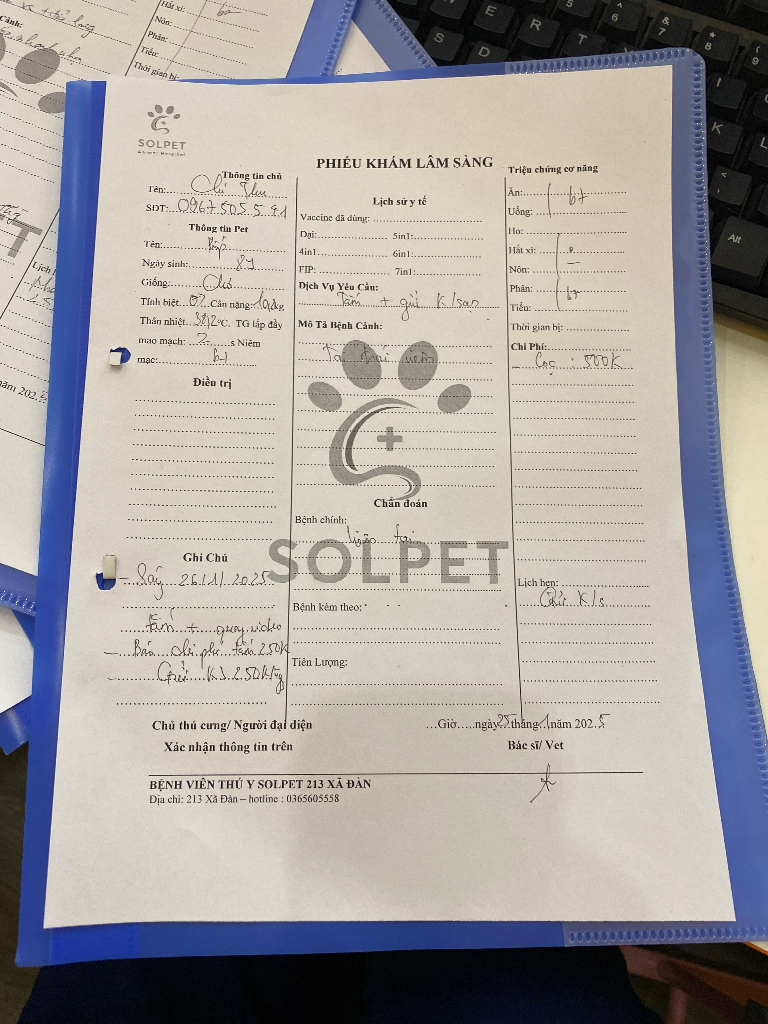 SOLPET
PHIẾU KHÁM LÂM SÀNG
Thông tin chủ
Tên: Chị Thu
SĐT: 0967505591
Thông tin Pet
Tên:
Ngày sinh: 8y
Giống: Chó
Tính biệt: Cân nặng: kg
Thân nhiệt: 38,2°C. TG lấp đầy
mao mạch: 2 s Niêm
mạc: bt
Điều trị
Ghi Chú
- 26/1/2025
Tắm + quay video
- Báo chi phí tắm 250K
- Gửi KS 250K/ng
Lịch sử y tế
Vaccine đã dùng:
Dại: 5in1:
4in1 6in1:
FIP: 7in1:
Dịch Vụ Yêu Cầu:
Tắm + gửi K/sạn
Mô Tả Bệnh Cảnh:
Tai trái viêm
Chẩn đoán
Bệnh chính:
Viêm tai
SOLPET
Bệnh kèm theo:
Tiên Lượng:
Triệu chứng cơ năng
Ăn: bt
Uống:
Ho:
Hắt xì:
Nôn:
Phân: bt
Tiểu:
Thời gian bị:
Chi Phí:
- Cọc : 500K
Lịch hẹn:
Gửi K/s
Chủ thú cưng/ Người đại diện
Xác nhận thông tin trên
...Giờ.....ngày 25 tháng 1 năm 2025
Bác sĩ/ Vet
BỆNH VIỆN THÚ Y SOLPET 213 XÃ ĐÀN
Địa chỉ: 213 Xã Đàn – hotline : 0365605558